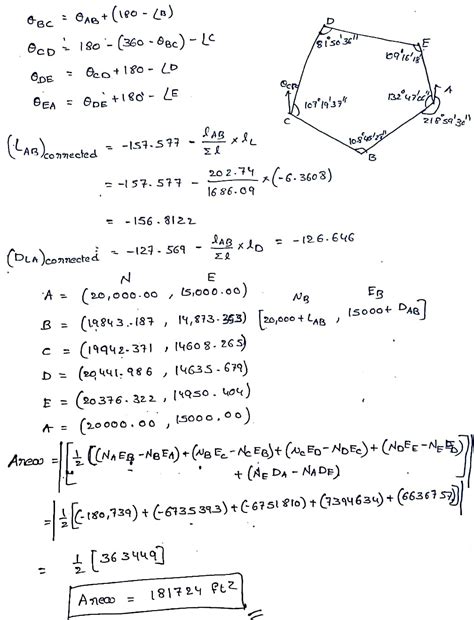 θBC = θAB + (180 - ∠B)
θCD = 180 - (360 - θBC) - ∠C
θDE = θCD + 180 - ∠D
θEA = θDE + 180 - ∠E
D
81°50'36"
E
109°16'18"
θCD
A
132°47'06"
107°19'37"
C
218°59'30"
B
(LAB)connected = -157.577 - lAB/Σl × lL
= -157.577 - 202.74/1686.09 × (-6.3608)
= -156.8122
(DLA)connected = -127.569 - lAB/Σl × lD = -126.646
N E
A = (20,000.00 , 15,000.00)
NB EB
B = (19843.187 , 14,873.353) [20,000 + LAB , 15000 + DAB]
C = (19942.371 , 14608.265)
D = (20441.986 , 14635.679)
E = (20376.322 , 14950.404)
A = (20000.00 , 15000.00)
Area = |[1/2 [(NAEB - NBEA) + (NBEC - NCEB) + (NCED - NDEC) + (NDEE - NEED)
+ (NEDA - NADE)]]|
= |1/2 [(-180,739) + (-6735393) + (-6751810) + (7394634) + (6636757)]|
= 1/2 [363449]
Area = 181724 ft2